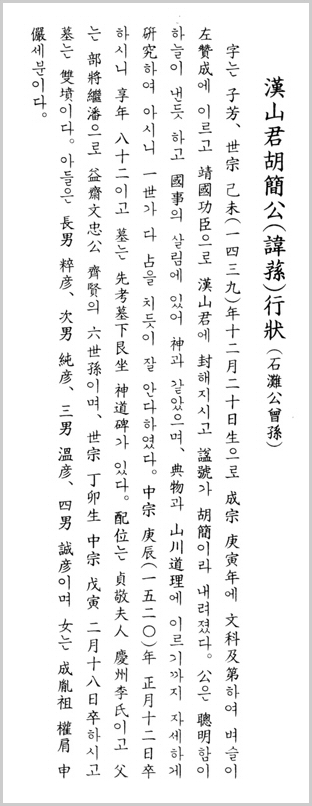 漢山君胡簡公(諱蓀)行狀(石灘公曾孫)
字는 子芳、世宗 己未(一四三九)年十二月二十日生으로 成宗 庚寅年에 文科及第하여 벼슬이
左贊成에 이르고 靖國功臣으로 漢山君에 封해지시고 諡號가 胡簡이라 내려졌다。公은 聰明함이
하늘이 낸듯 하고 國事의 살림에 있어 神과 같았으며、典物과 山川道理에 이르기까지 자세하게
硏究하여 아시니 一世가 다 占을 치듯이 잘 안다하였다。中宗 庚辰(一五二○)年 正月十二日卒
하시니 享年 八十二이고 墓는 先考墓下艮坐 神道碑가 있다。配位는 貞敬夫人 慶州李氏이고 父
는 部將繼潘으로 益齋文忠公 齊賢의 六世孫이며、世宗 丁卯生 中宗 戊寅 二月十八日卒하시고
墓는 雙墳이다。아들은 長男 粹彦、次男 純彦、三男 溫彦、四男 誠彦이며 女는 成胤祖 權肩 申
儼세분이다。